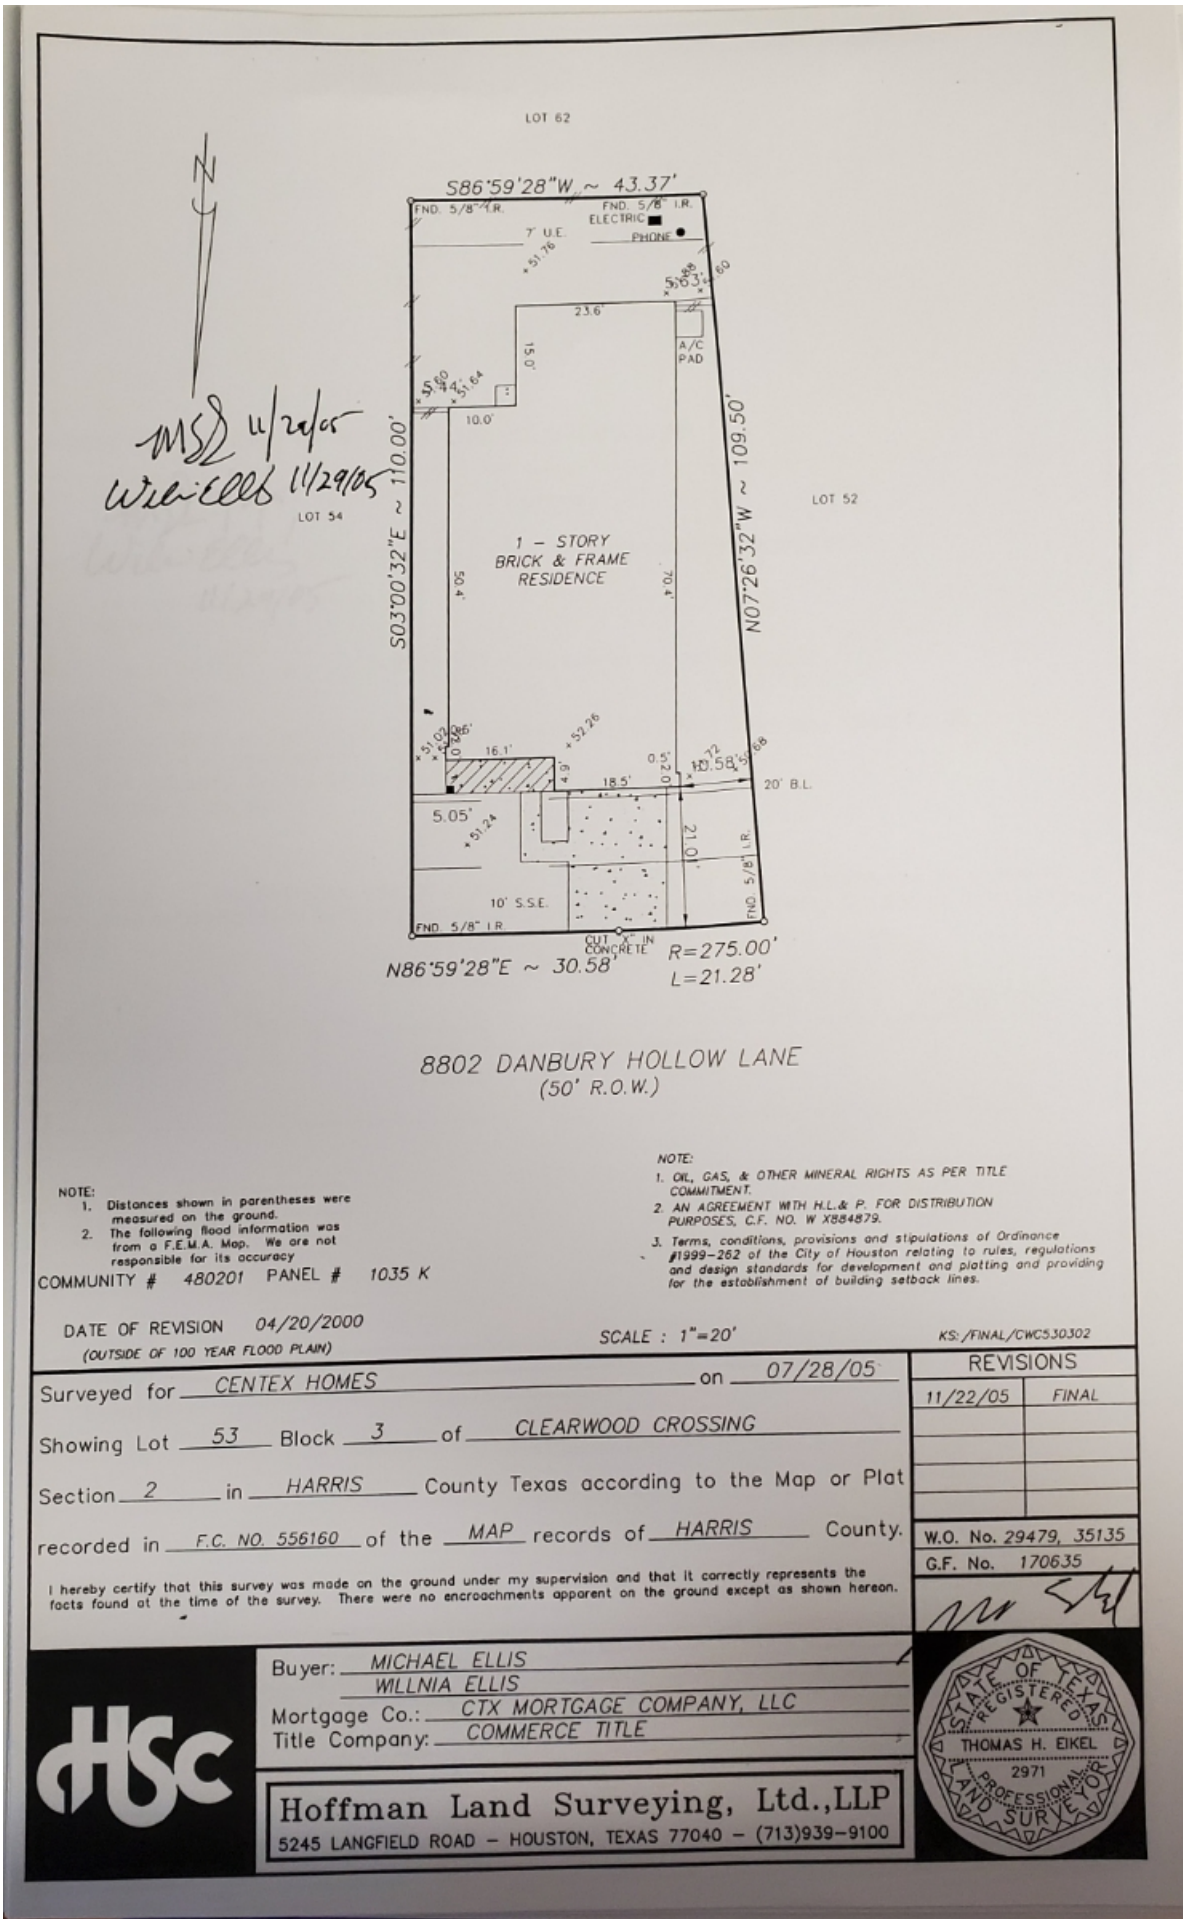 LOT 62
N
S86°59'28"W ~ 43.37'
FND. 5/8" I.R.
FND. 5/8" I.R.
ELECTRIC
7' U.E.
PHONE
+51.76
5.63'
23.6'
15.0'
A/C
PAD
51.64
10.0'
11/29/05
11/29/05
LOT 54
S03°00'32"E ~ 110.00'
N07°26'32"W ~ 109.50'
LOT 52
1 - STORY
BRICK & FRAME
RESIDENCE
50.4'
70.4'
51.02
16.1'
+52.26
0.5'
2.0'
10.58'
4.9'
18.5'
20' B.L.
5.05'
+51.24
21.01'
10' S.S.E.
FND. 5/8" I.R.
FND. 5/8" I.R.
CUT "X" IN
CONCRETE
N86°59'28"E ~ 30.58'
R=275.00'
L=21.28'
8802 DANBURY HOLLOW LANE
(50' R.O.W.)
NOTE:
1. Distances shown in parentheses were
measured on the ground.
2. The following flood information was
from a F.E.M.A. Map. We are not
responsible for its accuracy
COMMUNITY # 480201 PANEL # 1035 K
DATE OF REVISION 04/20/2000
(OUTSIDE OF 100 YEAR FLOOD PLAIN)
NOTE:
1. OIL, GAS, & OTHER MINERAL RIGHTS AS PER TITLE
COMMITMENT.
2. AN AGREEMENT WITH H.L.& P. FOR DISTRIBUTION
PURPOSES, C.F. NO. W X884879.
3. Terms, conditions, provisions and stipulations of Ordinance
#1999-262 of the City of Houston relating to rules, regulations
and design standards for development and platting and providing
for the establishment of building setback lines.
SCALE : 1"=20'
KS:/FINAL/CWC530302
Surveyed for CENTEX HOMES on 07/28/05
Showing Lot 53 Block 3 of CLEARWOOD CROSSING
Section 2 in HARRIS County Texas according to the Map or Plat
recorded in F.C. NO. 556160 of the MAP records of HARRIS County.
I hereby certify that this survey was made on the ground under my supervision and that it correctly represents the
facts found at the time of the survey. There were no encroachments apparent on the ground except as shown hereon.
REVISIONS
11/22/05 FINAL
W.O. No. 29479, 35135
G.F. No. 170635
HSC
Buyer: MICHAEL ELLIS
WILLNIA ELLIS
Mortgage Co.: CTX MORTGAGE COMPANY, LLC
Title Company: COMMERCE TITLE
Hoffman Land Surveying, Ltd.,LLP
5245 LANGFIELD ROAD - HOUSTON, TEXAS 77040 - (713)939-9100
STATE OF TEXAS
REGISTERED
THOMAS H. EIKEL
2971
PROFESSIONAL
LAND SURVEYOR